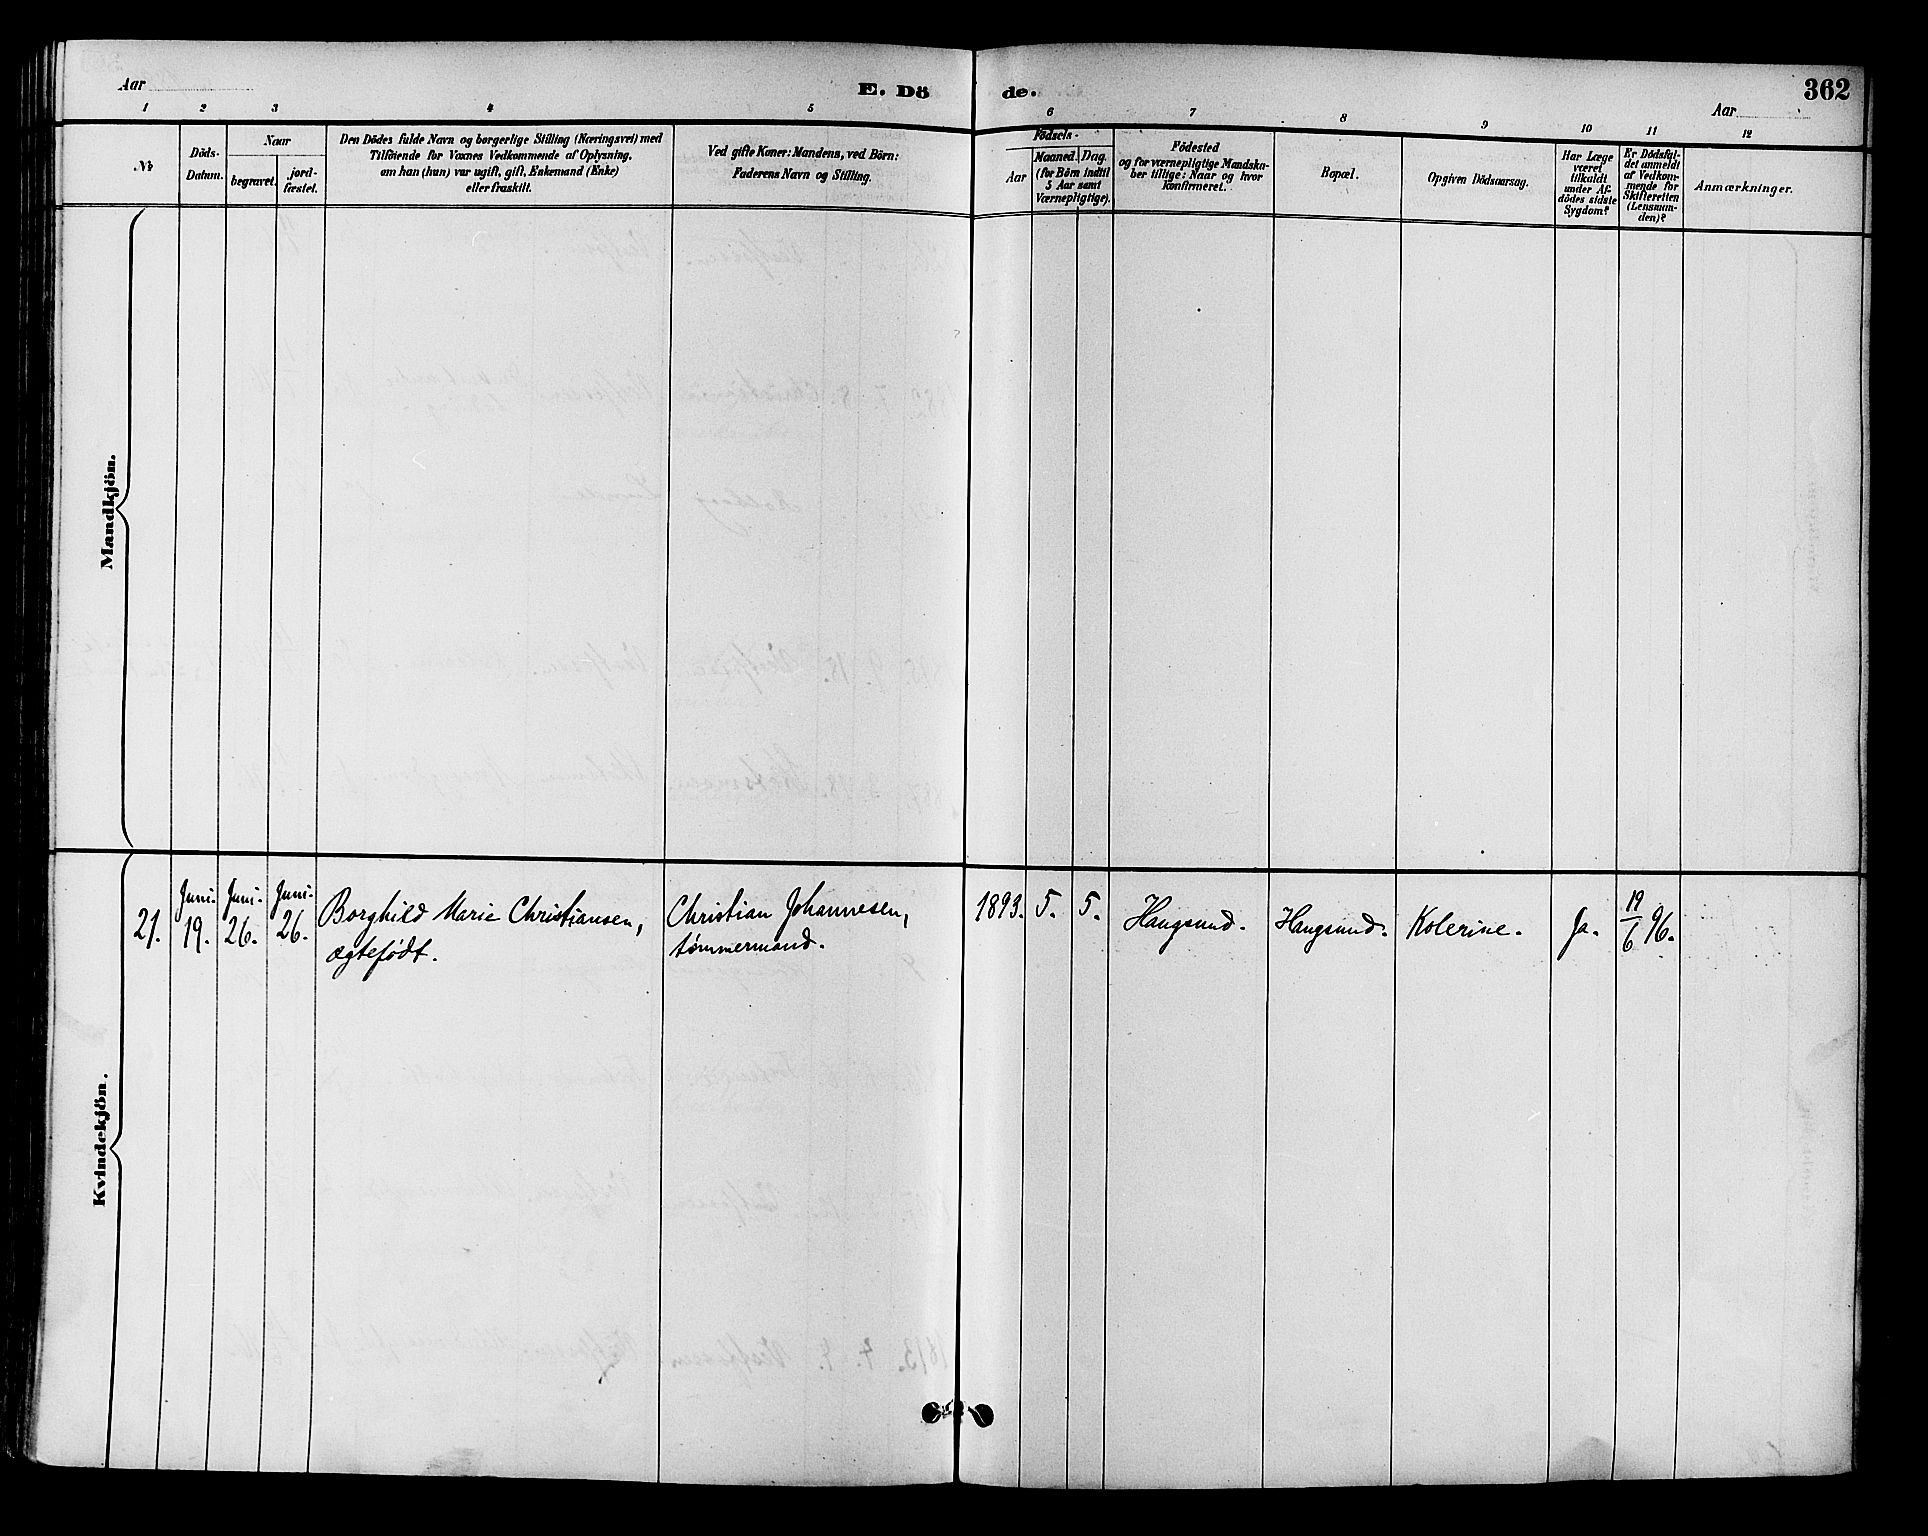 Aar
E. Dö
de.
Aar
362
1 2 3 4 5
6 7 8 9 10 11 12
No
Döds-
Datum.
Naar
begravet.
jord-
fæstet.
Den Dödes fulde Navn og borgerlige Stilling (Næringsvei) med
Tilföiende for Voxnes Vedkommende af Oplysning,
om han (hun) var ugift, gift, Enkemand (Enke)
eller fraskilt.
Ved gifte Koner: Mandens, ved Börn:
Faderens Navn og Stilling.
Födsels-
Aar
Maaned. Dag.
(for Börn indtil
5 Aar samt
Værnepligtige).
Födested
og for værnepligtige Mandska-
ber tillige: Naar og hvor
konfirmeret.
Bopæl.
Opgiven Dödsaarsag.
Har Læge
været
tilkaldt
under Af-
dödes sidste
Sygdom?
Er Dödsfal-
det anmeldt
af Vedkom-
mende for
Skifteretten
(Lensman-
den)?
Anmærkninger.
Mandkjön.
Kvindekjön.
21.
Juni.
19.
Juni.
26.
Juni.
26.
Borghild Marie Christiansen,
ægtefødt.
Christian Johannesen,
tømmermand.
1893. 5. 5.
Haugsund.
Haugsund.
Kolerine.
Ja.
19/6 96.